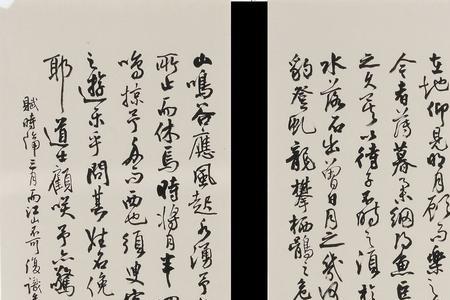 在地仰見明月顧而樂之
今者薄暮舉網得魚巨
之久矣以待子不時之須於
水落石出曾日月之幾何
豹登虬龍攀栖鶻之危
山鳴谷應風起水湧予
所止而休焉時將半四
鳴掠予舟而西也須臾客
之遊樂乎問其姓名俛
耶道士顧咲予亦驚
賦時三月而江山不可復識